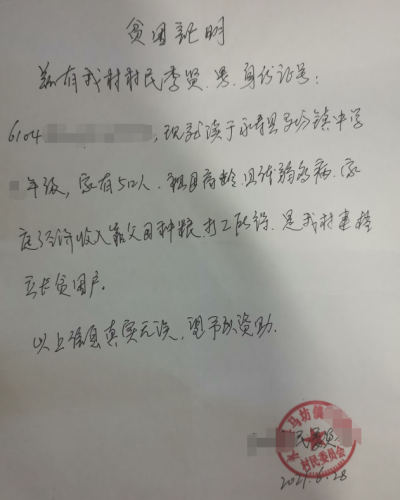 贫困证明
兹有我村村民李贤.男.身份证号:
6104 ,现就读于永寿县马坊镇中学
年级,家有5口人.祖母高龄.且体弱多病.家
庭经济收入靠父母种粮.打工所得.是我村建档
立卡贫困户.
以上信息真实无误,望予以资助.
马坊镇
村民委员会
2021.8.28